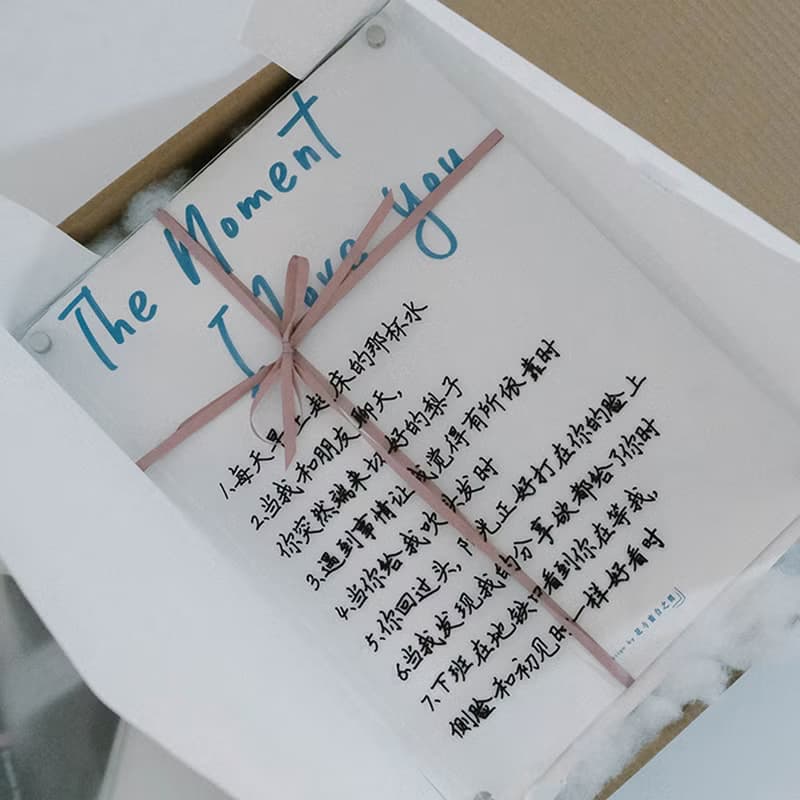 The Moment
I love you
1.每天早上起床的那杯水
2.当我和朋友聊天,
你突然端来切好的梨子
3.遇到事情让我觉得有所依靠时
4.当你给我吹头发时
5.你回过头,阳光正好打在你的脸上
6.当我发现我的分享欲都给了你时
7.下班在地铁口看到你在等我,
侧脸和初见时一样好看时
design by